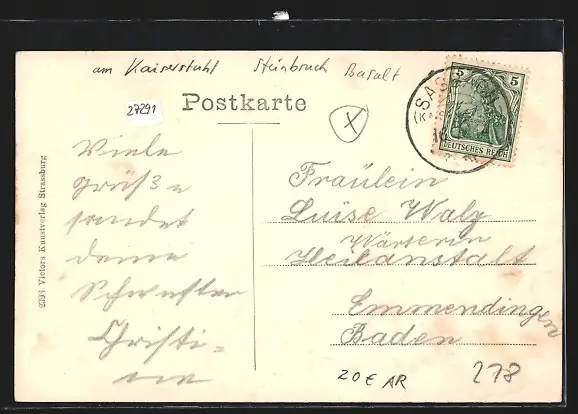 am Kaiserstuhl Steinbruch Basalt
27291
Postkarte
SAS
(KA
5 5
DEUTSCHES REICH
Viele
Grüße
sendet
deine
Schwester
Christi=
ne
Fräulein
Luise Walz
Wärterin
Heilanstalt
Emmendingen
Baden
20 € AR
278
2396 Victors Kunstverlag Strassburg